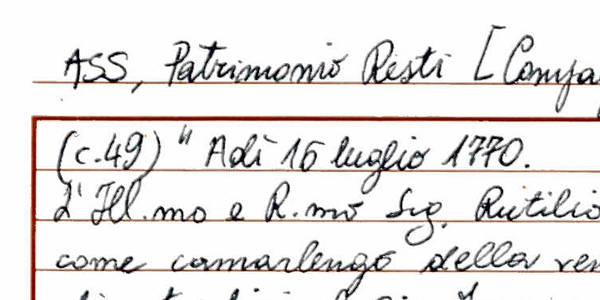 ASS, Patrimonio Resti [Compa
(c.49) " Adì 16 luglio 1770.
L'Ill.mo e R.mo Sig. Rutilio
come camarlengo della ven